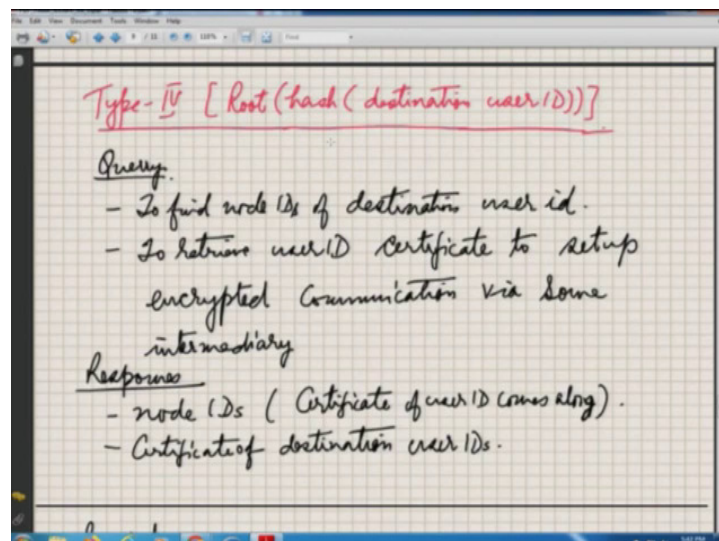 File Edit View Document Tools Window Help
9 / 11 118% Find
Type-IV [Root(hash(destination user ID))]
Query
- To find node IDs of destination user id.
- To retrieve user ID certificate to setup
encrypted Communication via Some
intermediary
Responses
- node IDs ( Certificate of user ID comes along).
- Certificate of destination user IDs.
5:42 PM